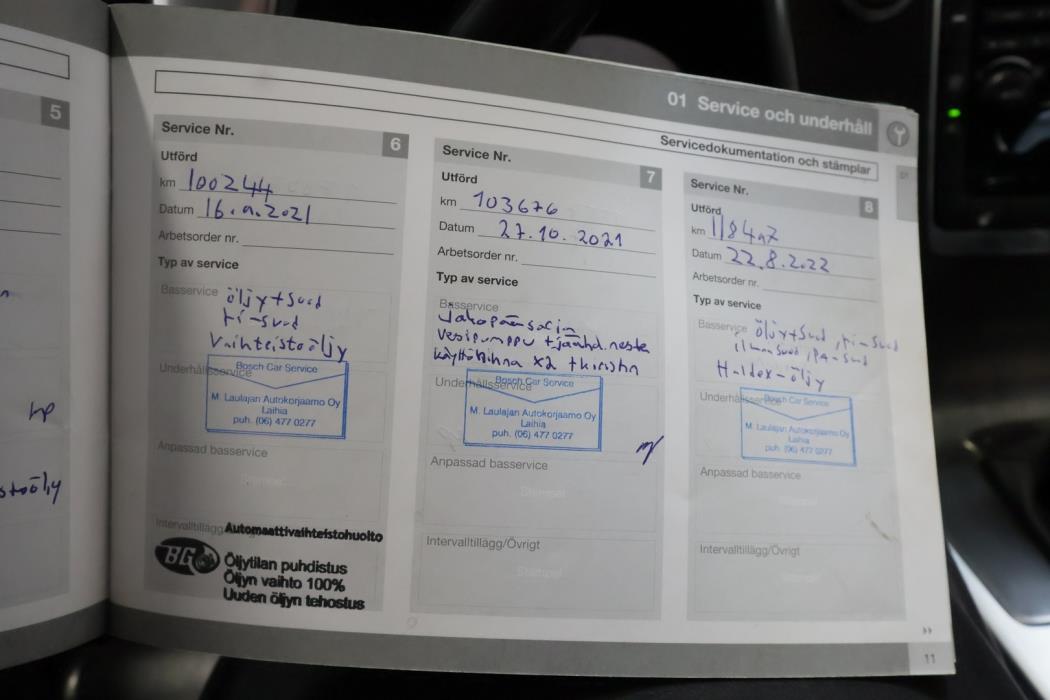 01 Service och underhåll
Servicedokumentation och stämplar
5
Service Nr. 6
Utförd
km 100244
Datum 16.9.2021
Arbetsorder nr.
Typ av service
Basservice öljy+suod
ri-suod
Vaihteistoöljy
Underhållsservice
Bosch Car Service
M. Laulajan Autokorjaamo Oy
Laihia
puh. (06) 477 0277
Anpassad basservice
Stämpel
Intervalltillägg
Automaattivaihteistohuolto
BG
Öljytilan puhdistus
Öljyn vaihto 100%
Uuden öljyn tehostus
Service Nr. 7
Utförd
km 103676
Datum 27.10.2021
Arbetsorder nr.
Typ av service
Basservice
Jakopäänsarja
Vesipumppu +jäähd.neste
Käyttöhihna x2 +kiristin
Underhållsservice
Bosch Car Service
M. Laulajan Autokorjaamo Oy
Laihia
puh. (06) 477 0277
Anpassad basservice
Stämpel
Intervalltillägg/Övrigt
Stämpel
Service Nr. 8
Utförd
km 118497
Datum 22.8.2022
Arbetsorder nr.
Typ av service
Basservice öljy+suod, ri-suod
ilmansuod, PA-suod
Haldex-öljy
Underhållsservice
Bosch Car Service
M. Laulajan Autokorjaamo Oy
Laihia
puh. (06) 477 0277
Anpassad basservice
Stämpel
Intervalltillägg/Övrigt
Stämpel
11